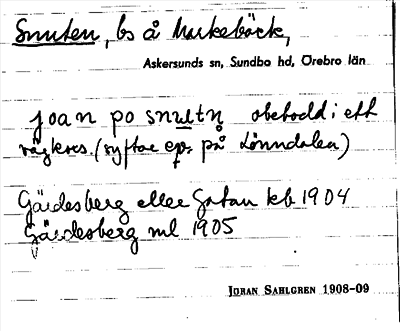 Snuten, bs å Markebäck,
Askersunds sn, Sundbo hd, Örebro län
joan po snultn obebodd i ett
vägkors. (syftar ep. på Lönndalen)
Gärdesberg eller Gatan kb 1904
Gärdesberg ml 1905
JORAN SAHLGREN 1908-09